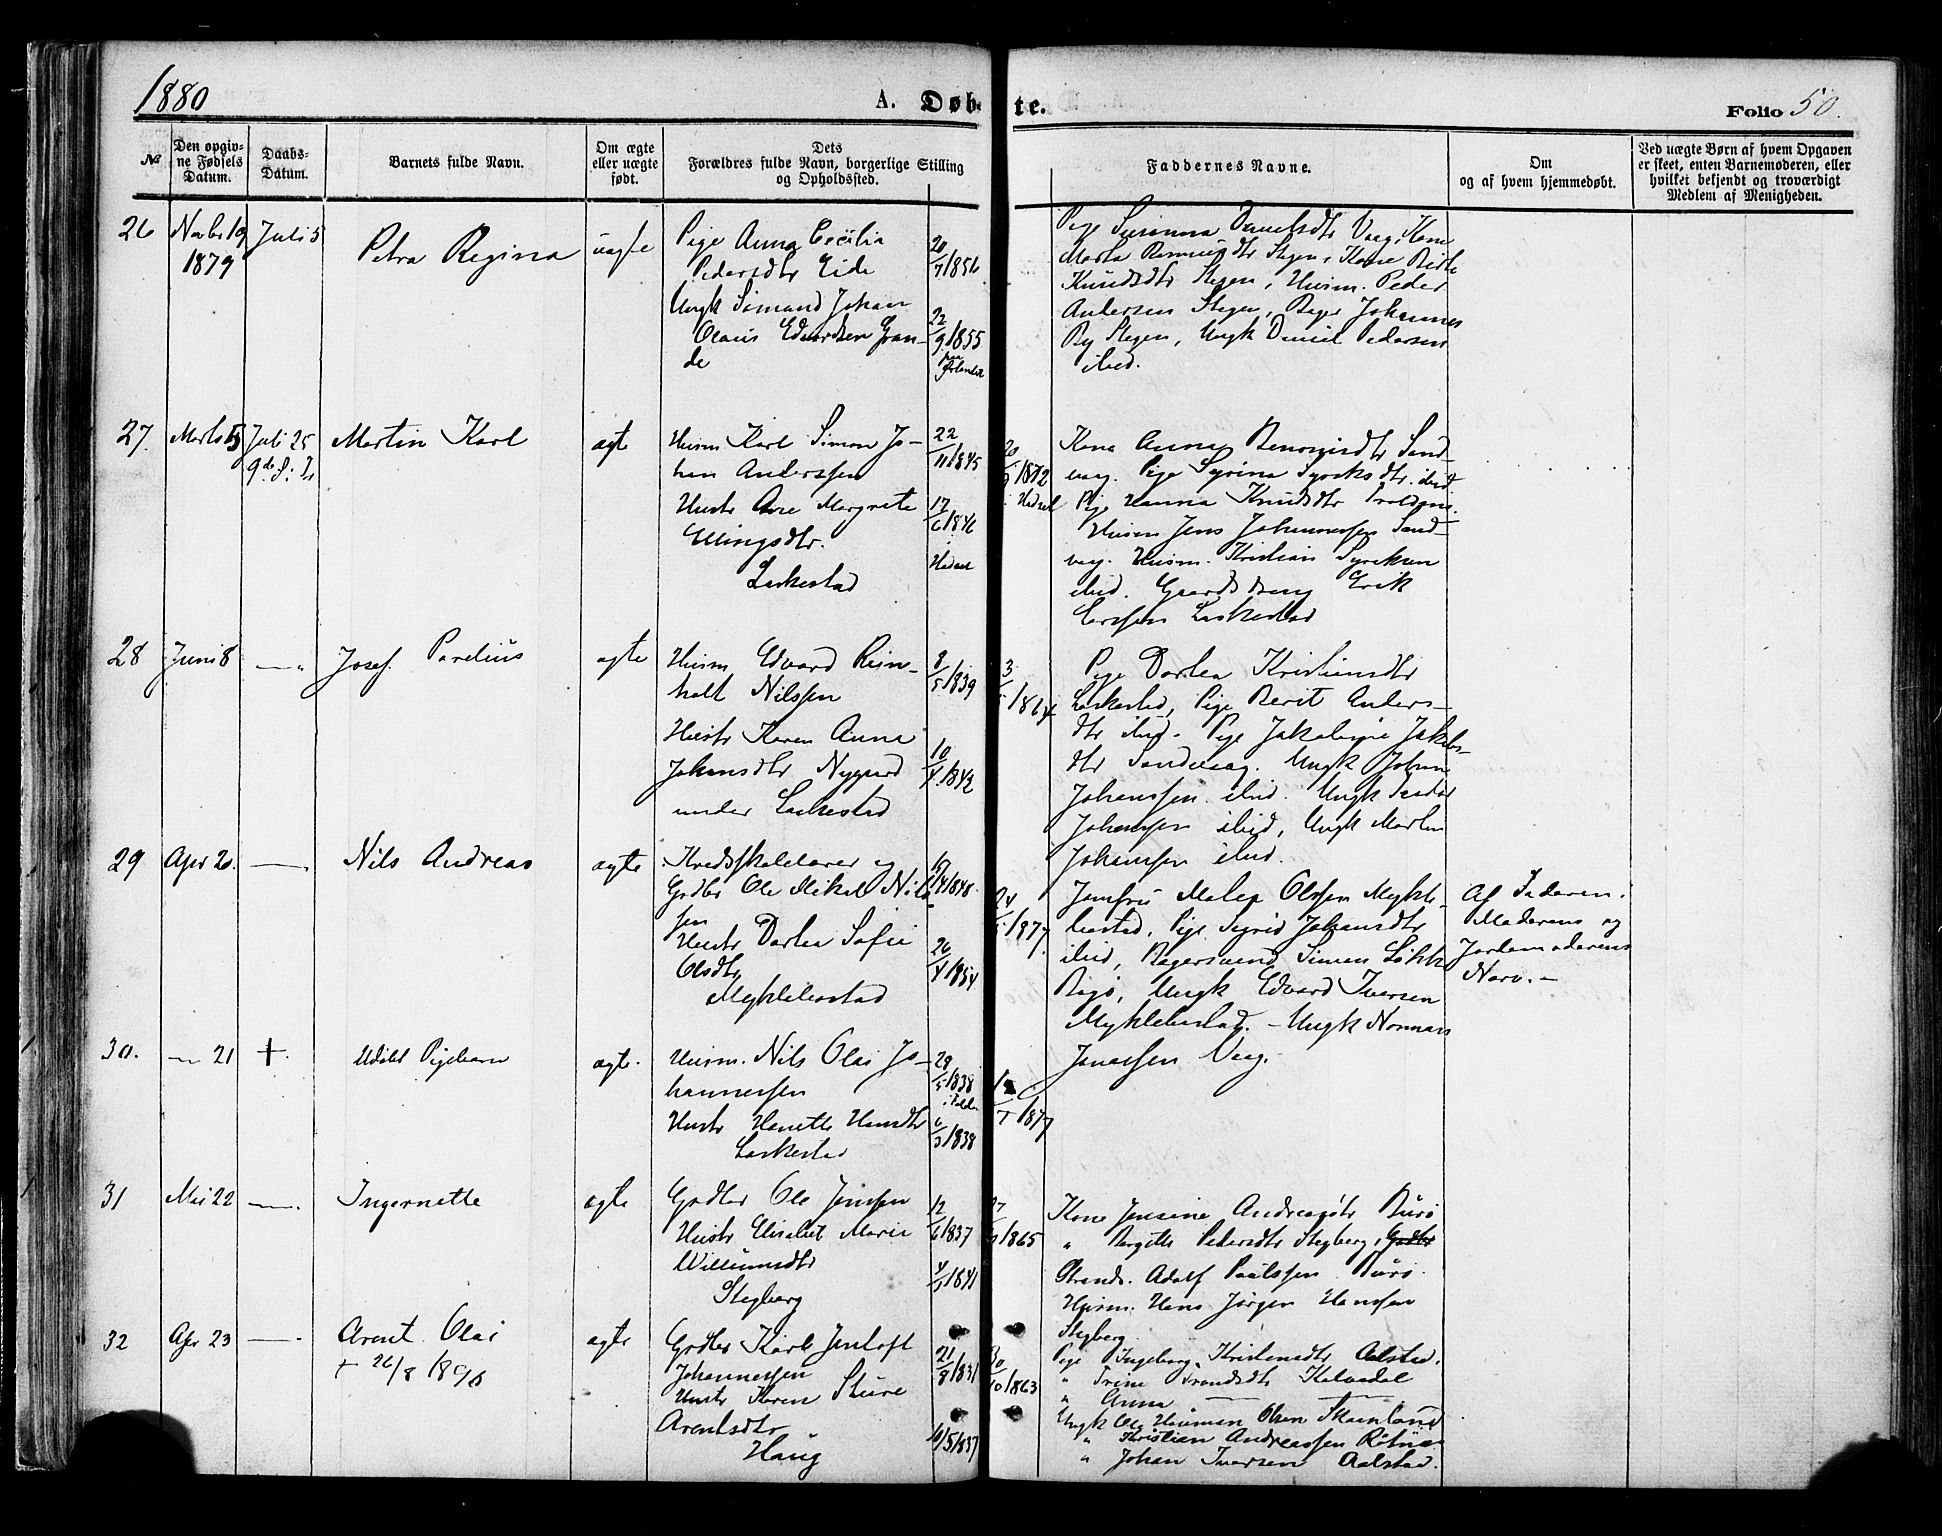 1880
A. Døb-
te.
Folio 50.
№
Den opgiv-
ne Fødsels
Datum.
Daabs-
Datum.
Barnets fulde Navn.
Om ægte
eller uægte
født.
Dets
Forældres fulde Navn, borgerlige Stilling
og Opholdssted.
Faddernes Navne.
Om
og af hvem hjemmedøbt.
Ved uægte Børn af hvem Opgaven
er skeet, enten Barnemoderen, eller
hvilket bekjendt og troværdigt
Medlem af Menigheden.
26
Novbr 19
1879
Juli 5
Petra Regina
uagte
Pige Anna Cecilia
Pedersdtr Eide
Ungk Simand Johan
Olaus Edvardsen Gran-
de
20/7 1856
22/9 1855
Pige Susanna Danielsdtr Vaag, Kone
Marta Rasmusdtr Stegen, Kone Berte
Knudsdtr Stegen, Husm. Peder
Andersen Stegen, Johannes
By Stegen, Ungk Daniel Pedersen
ibid.
27.
Marts 15
Juli 25
9de S. Tr
Martin Karl
agte
Husm Karl Simon Jo-
han Anderssen
Hustr Ane Margrete
Ellingsdtr.
Laskestad
22/11 1845
17/6 1846
i
Hadsel
1872
i Hadsel
Kone Anna Benonisdtr Sand-
vaag. Pige Syrina Syveksdtr. ibid
Pige Hanna Knudsdtr
Husm Jens Johannessen Sand-
vaag. Husm. Kristian Syveksen
ibid. Gaardsdreng Erik
Larssen Laskestad
28
Juni 8
— "
Josef Parelius
agte
Husm Edvard Rein-
holt Nilssen
Hustr Karen Anna
Johansdtr Nygaard
under Laskestad
8/5 1839
10/4 1842
3
1864
Pige Dortea Kristiansdtr
Laskestad, Pige Berit Anders-
dtr ibid. Pige Jakobine Jakobs-
dtr Sandvaag. Ungk Johan
Johanssen ibid. Ungk
Johanssen ibid, Ungk Martin
Johanssen ibid.
29
Apr 20.
—
Nils Andreas
agte
Kredsskolelærer og
Grdbr Ole Mikal Nils-
sen
Hustr Dortea Sofie
Olsdtr
Myklebostad
1848
26/4 1854
24
1877
Jomfru Malea Olssen Mykle-
bostad, Pige Sigrid Johansdtr
ibid, Bagersvend Simon Løkk
Bogø, Ungk Edvard Iversen
Myklebostad. - Ungk Norman
Jonassen Vaag.
Af Faderen i
Moderens og
Jordemoderens
Narv. —
30.
— 21
+
Udøbt Pigebarn
agte.
Husm. Nils Olai Jo-
hannessen
Hustr Hanette Hansdtr
Laskestad
29/5 1838
i Folden
6/3 1838
1877
31
Mai 22
—
Ingernette
agte
Grdbr Ole Jenssen
Hustr Elisabet Marie
Williumsdtr
Stegberg
12/6 1837
1841
27
1865
Kone Jensine Andreasdtr Burø
" Bergitte Pedersdtr Stegberg, Grdbr
Strands. Adolf Paulssen Burø.
Husm. Hans Jørgen Hanssen
Stegberg
32
Apr 23
—
Arent Olai
+ 26/8 1896
agte
Grdbr Karl Jentoft
Johannessen
Hustr Karen Sture
Arentsdtr
Haug
21/8 1831
16/5 1837
30/10 1863
Pige Ingeborg Kristensdtr Aalstad.
" Trine Trondsdtr Kalvedal
" Anna — —
Ungk Ole Herman Olsen Skonland
" Kristian Andreassen Røtnes
" Johan Iversen Aalstad.